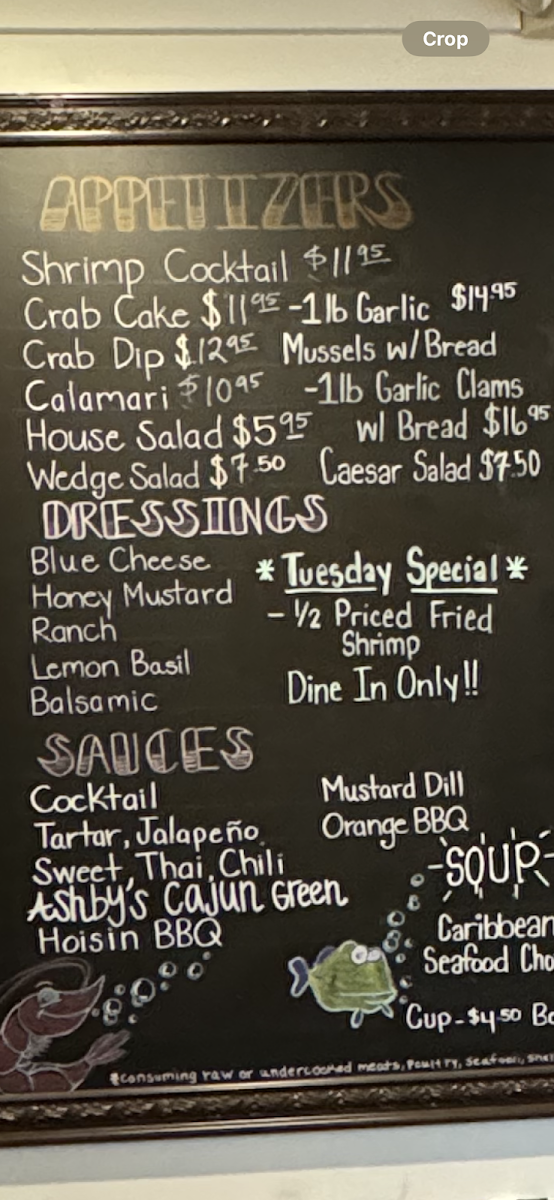 Crop
APPETIZERS
Shrimp Cocktail $11.95
Crab Cake $11.95
-1lb Garlic $14.95
Mussels w/Bread
Crab Dip $12.95
Calamari $10.95
-1lb Garlic Clams
w/ Bread $16.95
House Salad $5.95
Wedge Salad $7.50
Caesar Salad $7.50
DRESSINGS
Blue Cheese
Honey Mustard
Ranch
Lemon Basil
Balsamic
* Tuesday Special *
- 1/2 Priced Fried
Shrimp
Dine In Only!!
SAUCES
Cocktail
Tartar, Jalapeño
Sweet, Thai, Chili
Ashby's Cajun Green
Hoisin BBQ
Mustard Dill
Orange BBQ
SOUP
Caribbean
Seafood
Cup-$4.50
*consuming raw or undercooked meats, Poultry, Seafood,